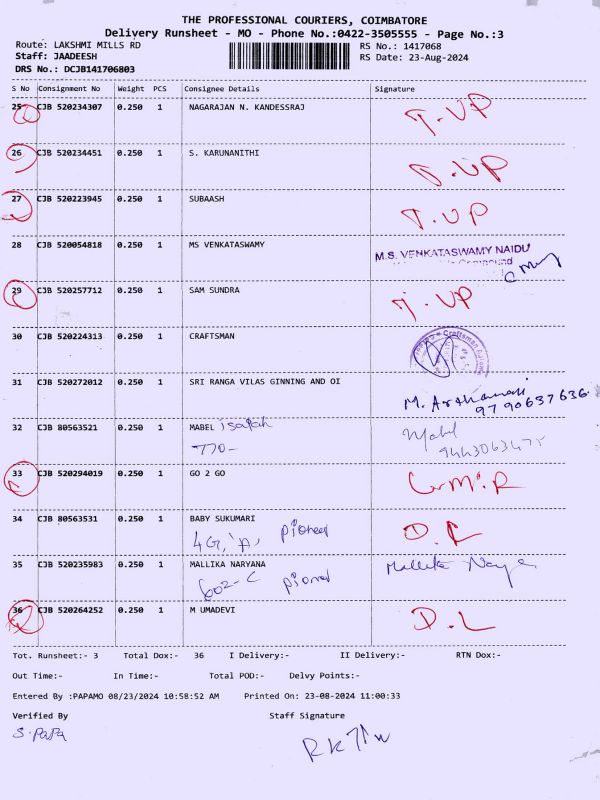 THE PROFESSIONAL COURIERS, COIMBATORE
Delivery Runsheet - MO - Phone No.:0422-3505555 - Page No.:3
Route: LAKSHMI MILLS RD RS No.: 1417068
Staff: JAADEESH RS Date: 23-Aug-2024
DRS No.: DCJB141706803
S No Consignment No Weight PCS Consignee Details Signature
25 CJB 520234307 0.250 1 NAGARAJAN N. KANDESSRAJ T.UP
26 CJB 520234451 0.250 1 S. KARUNANITHI T.UP
27 CJB 520223945 0.250 1 SUBAASH T.UP
28 CJB 520054818 0.250 1 MS VENKATASWAMY M.S. VENKATASWAMY NAIDU
Compound
29 CJB 520257712 0.250 1 SAM SUNDRA T.UP
30 CJB 520224313 0.250 1 CRAFTSMAN Craftsman
31 CJB 520272012 0.250 1 SRI RANGA VILAS GINNING AND OI
9790637636
32 CJB 80563521 0.250 1 MABEL Mabel
770-
33 CJB 520294019 0.250 1 GO 2 GO
34 CJB 80563531 0.250 1 BABY SUKUMARI
4G, 'A, pioneer
35 CJB 520235983 0.250 1 MALLIKA NARYANA Mallika
602-C
36 CJB 520264252 0.250 1 M UMADEVI D.L
Tot. Runsheet:- 3 Total Dox:- 36 I Delivery:- II Delivery:- RTN Dox:-
Out Time:- In Time:- Total POD:- Delvy Points:-
Entered By :PAPAMO 08/23/2024 10:58:52 AM Printed On: 23-08-2024 11:00:33
Verified By Staff Signature
S.PAPA